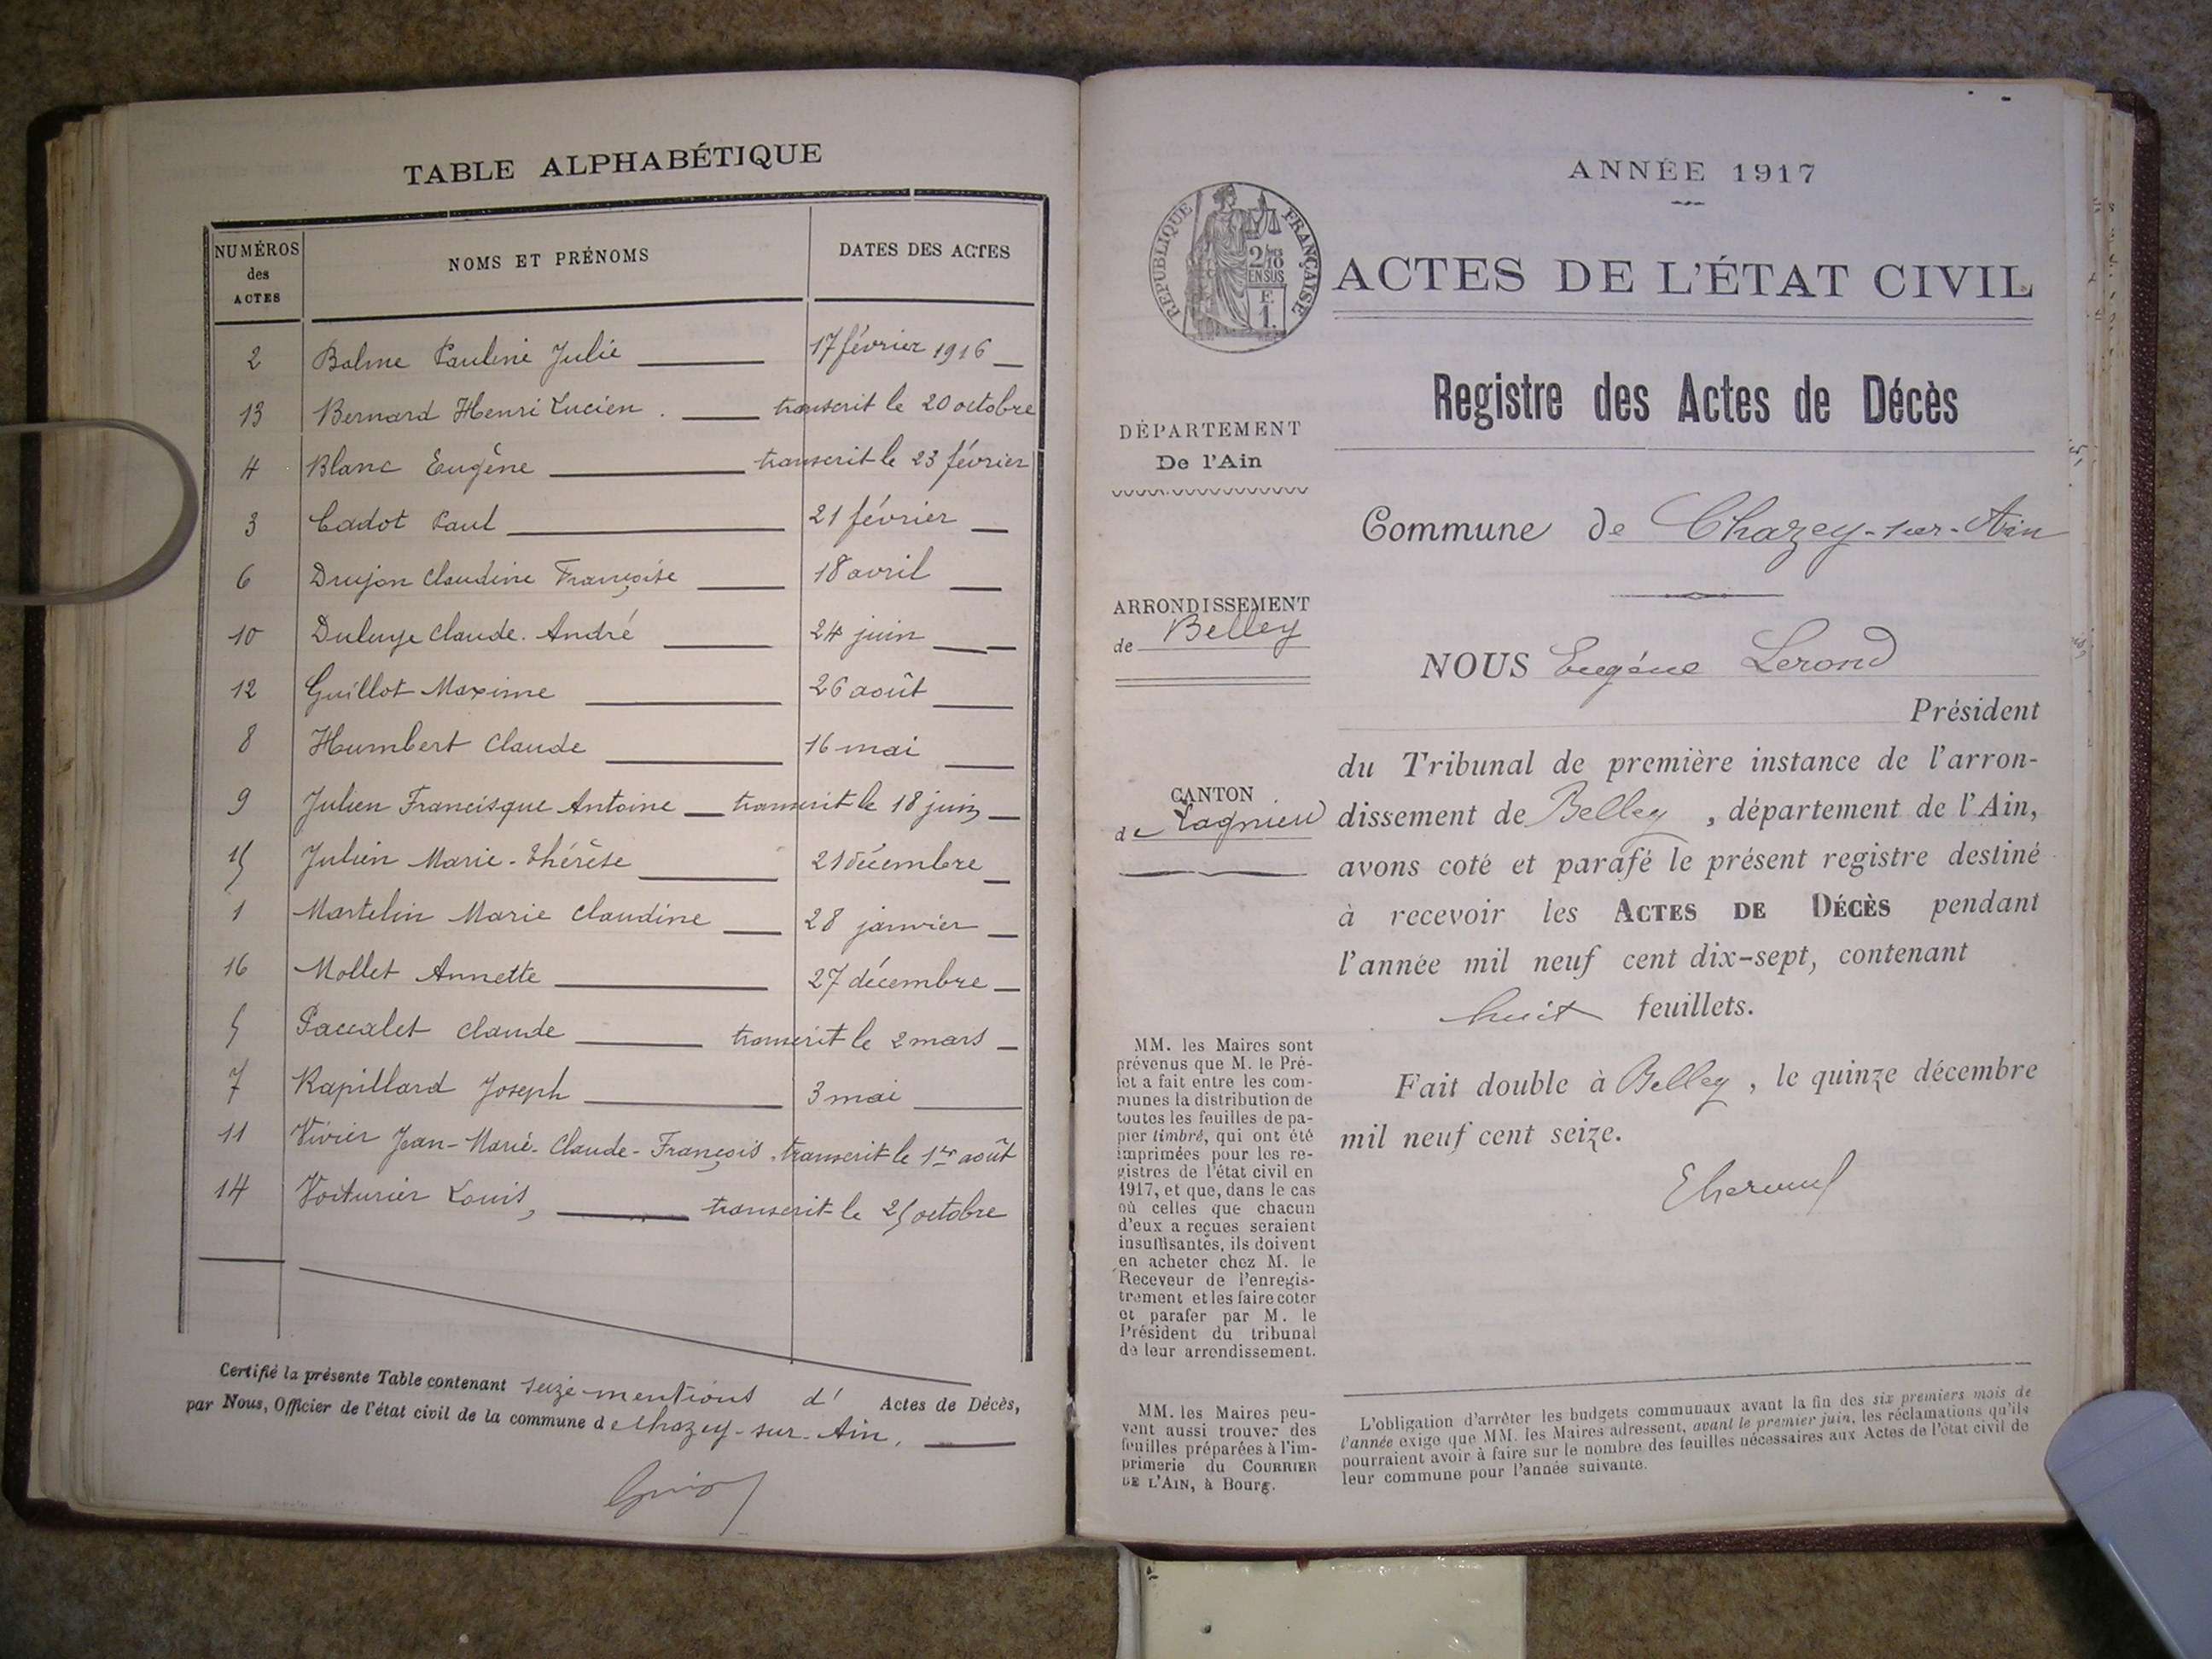 TABLE ALPHABÉTIQUE
NUMÉROS
des
ACTES
NOMS ET PRÉNOMS
DATES DES ACTES
2 Balme Pauline Julie 17 février 1916
13 Bernard Henri Lucien. transcrit le 20 octobre
4 Blanc Eugène transcrit le 23 février
3 Cadot Paul 21 février
6 Drujon Claudine Françoise 18 avril
10 Claude. André 24 juin
12 Guillot Maxime 26 août
8 Humbert Claude 16 mai
9 Julien Francisque Antoine transcrit le 18 juin
15 Julien Marie-Thérèse 21 décembre
1 Martelin Marie Claudine 28 janvier
16 Mollet Annette 27 décembre
5 Paccalet Claude transcrit le 2 mars
7 Rapillard Joseph 3 mai
11 Vivier Jean-Marie-Claude-François. transcrit le 1er août
14 Voiturier Louis, transcrit le 25 octobre
Certifié la présente Table contenant seize mentions d' Actes de Décès,
par Nous, Officier de l'état civil de la commune de Chazey-sur-Ain.
ANNÉE 1917
RÉPUBLIQUE FRANÇAISE
2/10
EN SUS
F.
1.
ACTES DE L'ÉTAT CIVIL
Registre des Actes de Décès
DÉPARTEMENT
De l'Ain
Commune de Chazey-sur-Ain
ARRONDISSEMENT
de Belley
NOUS Eugéne Lerond
Président
du Tribunal de première instance de l'arron-
CANTON
de Lagnieu
dissement de Belley, département de l'Ain,
avons coté et parafé le présent registre destiné
à recevoir les ACTES DE DÉCÈS pendant
l'année mil neuf cent dix-sept, contenant
huit feuillets.
Fait double à Belley, le quinze décembre
mil neuf cent seize.
MM. les Maires sont
prévenus que M. le Pré-
fet a fait entre les com-
munes la distribution de
toutes les feuilles de pa-
pier timbré, qui ont été
imprimées pour les re-
gistres de l'état civil en
1917, et que, dans le cas
où celles que chacun
d'eux a reçues seraient
insuffisantes, ils doivent
en acheter chez M. le
Receveur de l'enregis-
trement et les faire coter
et parafer par M. le
Président du tribunal
de leur arrondissement.
MM. les Maires peu-
vent aussi trouver des
feuilles préparées à l'im-
primerie du COURRIER
DE L'AIN, à Bourg.
L'obligation d'arrêter les budgets communaux avant la fin des six premiers mois de
l'année exige que MM. les Maires adressent, avant le premier juin, les réclamations qu'ils
pourraient avoir à faire sur le nombre des feuilles nécessaires aux Actes de l'état civil de
leur commune pour l'année suivante.